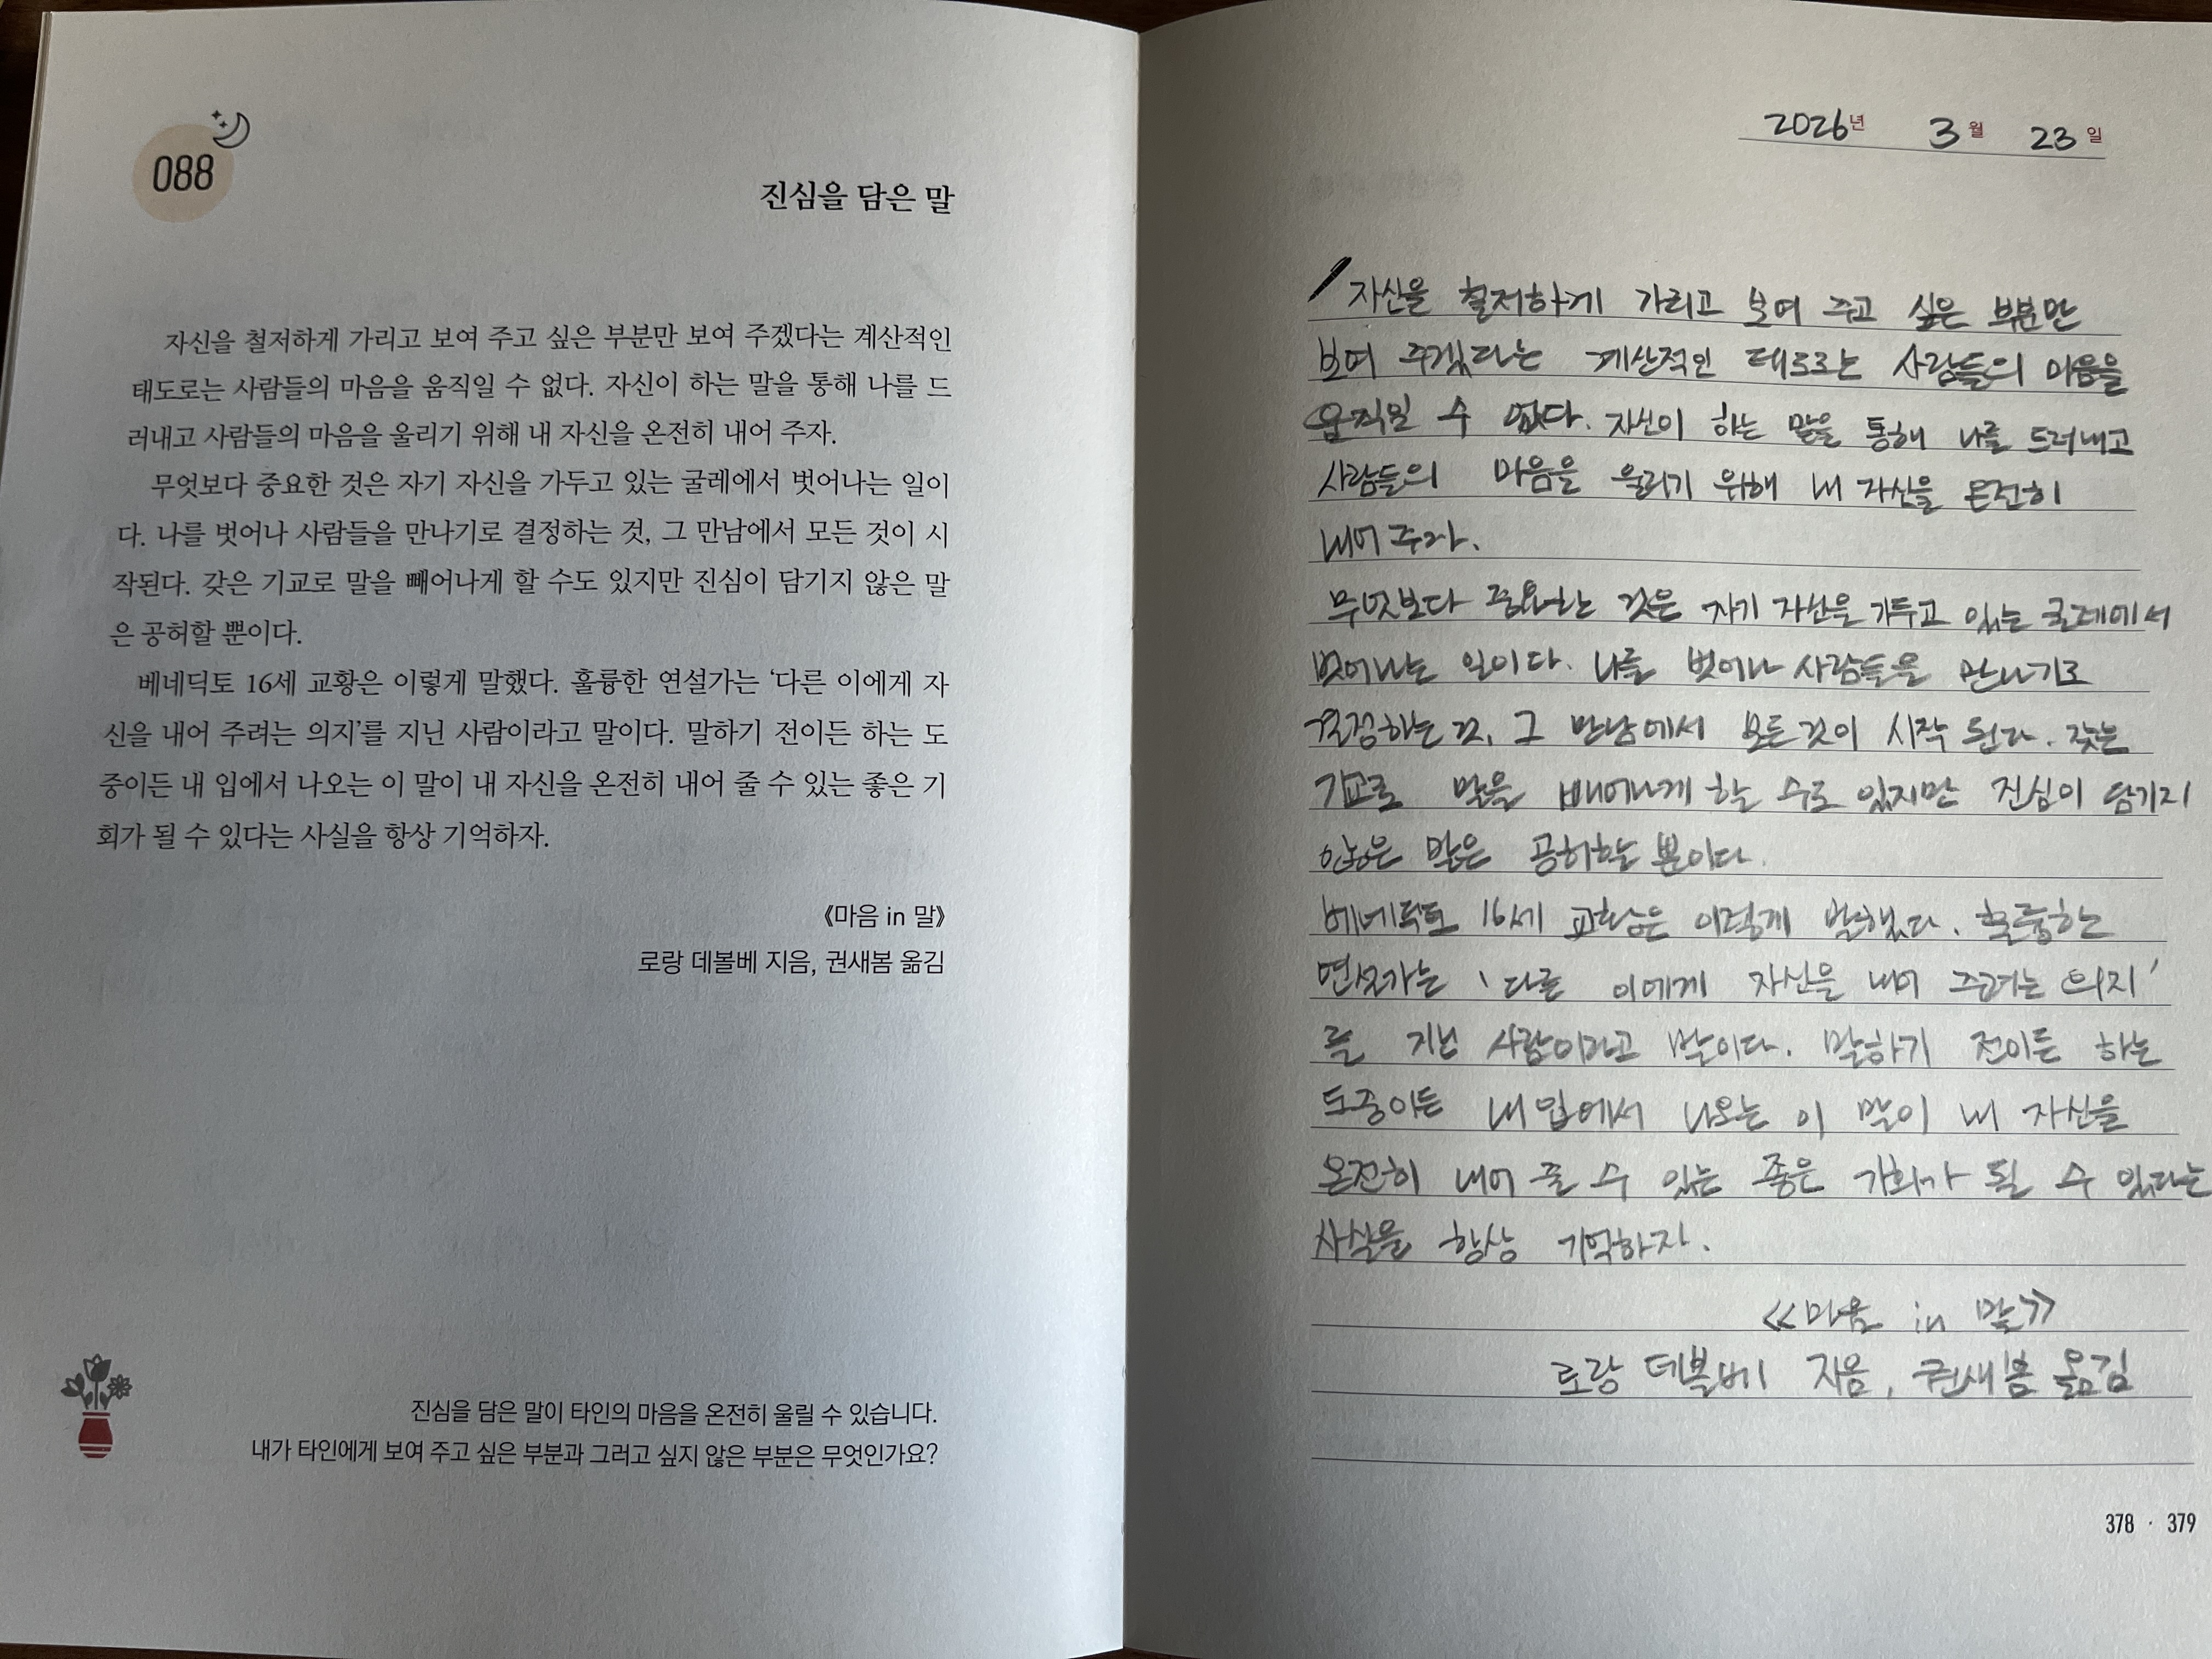 088
진심을 담은 말
자신을 철저하게 가리고 보여 주고 싶은 부분만 보여 주겠다는 계산적인
태도로는 사람들의 마음을 움직일 수 없다. 자신이 하는 말을 통해 나를 드
러내고 사람들의 마음을 울리기 위해 내 자신을 온전히 내어 주자.
무엇보다 중요한 것은 자기 자신을 가두고 있는 굴레에서 벗어나는 일이
다. 나를 벗어나 사람들을 만나기로 결정하는 것, 그 만남에서 모든 것이 시
작된다. 갖은 기교로 말을 빼어나게 할 수도 있지만 진심이 담기지 않은 말
은 공허할 뿐이다.
베네딕토 16세 교황은 이렇게 말했다. 훌륭한 연설가는 ‘다른 이에게 자
신을 내어 주려는 의지’를 지닌 사람이라고 말이다. 말하기 전이든 하는 도
중이든 내 입에서 나오는 이 말이 내 자신을 온전히 내어 줄 수 있는 좋은 기
회가 될 수 있다는 사실을 항상 기억하자.
《마음 in 말》
로랑 데볼베 지음, 권새봄 옮김
진심을 담은 말이 타인의 마음을 온전히 울릴 수 있습니다.
내가 타인에게 보여 주고 싶은 부분과 그러고 싶지 않은 부분은 무엇인가요?
2026년 3월 23일
자신을 철저하게 가리고 보여 주고 싶은 부분만
보여 주겠다는 계산적인 태도로는 사람들의 마음을
움직일 수 없다. 자신이 하는 말을 통해 나를 드러내고
사람들의 마음을 울리기 위해 내 자신을 온전히
내어 주자.
무엇보다 중요한 것은 자기 자신을 가두고 있는 굴레에서
벗어나는 일이다. 나를 벗어나 사람들을 만나기로
결정하는 것, 그 만남에서 모든것이 시작 된다. 갖은
기교로 말을 빼어나게 할 수도 있지만 진심이 담기지
않은 말은 공허할 뿐이다.
베네딕토 16세 교황은 이렇게 말했다. 훌륭한
연설가는 '다른 이에게 자신을 내어 주려는 의지'
를 지닌 사람이라고 말이다. 말하기 전이든 하는
도중이든 내 입에서 나오는 이 말이 내 자신을
온전히 내어 줄 수 있는 좋은 기회가 될 수 있다는
사실을 항상 기억하자.
《마음 in 말》
로랑 데볼베 지음, 권새봄 옮김
378 · 379